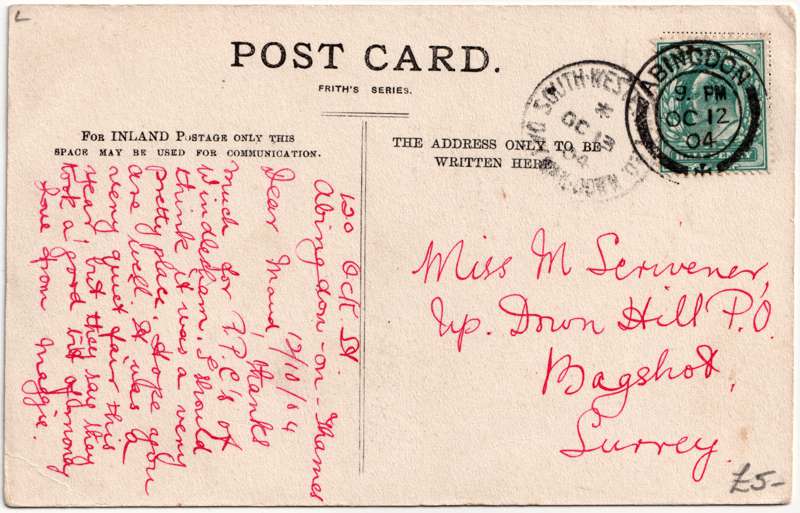 POST CARD.
FRITH'S SERIES.
FOR INLAND POSTAGE ONLY THIS
SPACE MAY BE USED FOR COMMUNICATION.
THE ADDRESS ONLY TO BE
WRITTEN HERE
SOUTH-WES
OC 13
04
ABINGDON
9. PM
OC 12
04
130 Ock St.
Abingdon-on-Thames
12/10/04
Dear Maud, thanks
much for P.P.C's of
Windlesham. I should
think it was a very
pretty place. Hope you
are well. It was a
very quiet fair this
year, but they say they
took a good bit of money
Love from Maggie.
Miss M Scrivener,
Up. Down Hill P.O.
Bagshot,
Surrey.
£5-